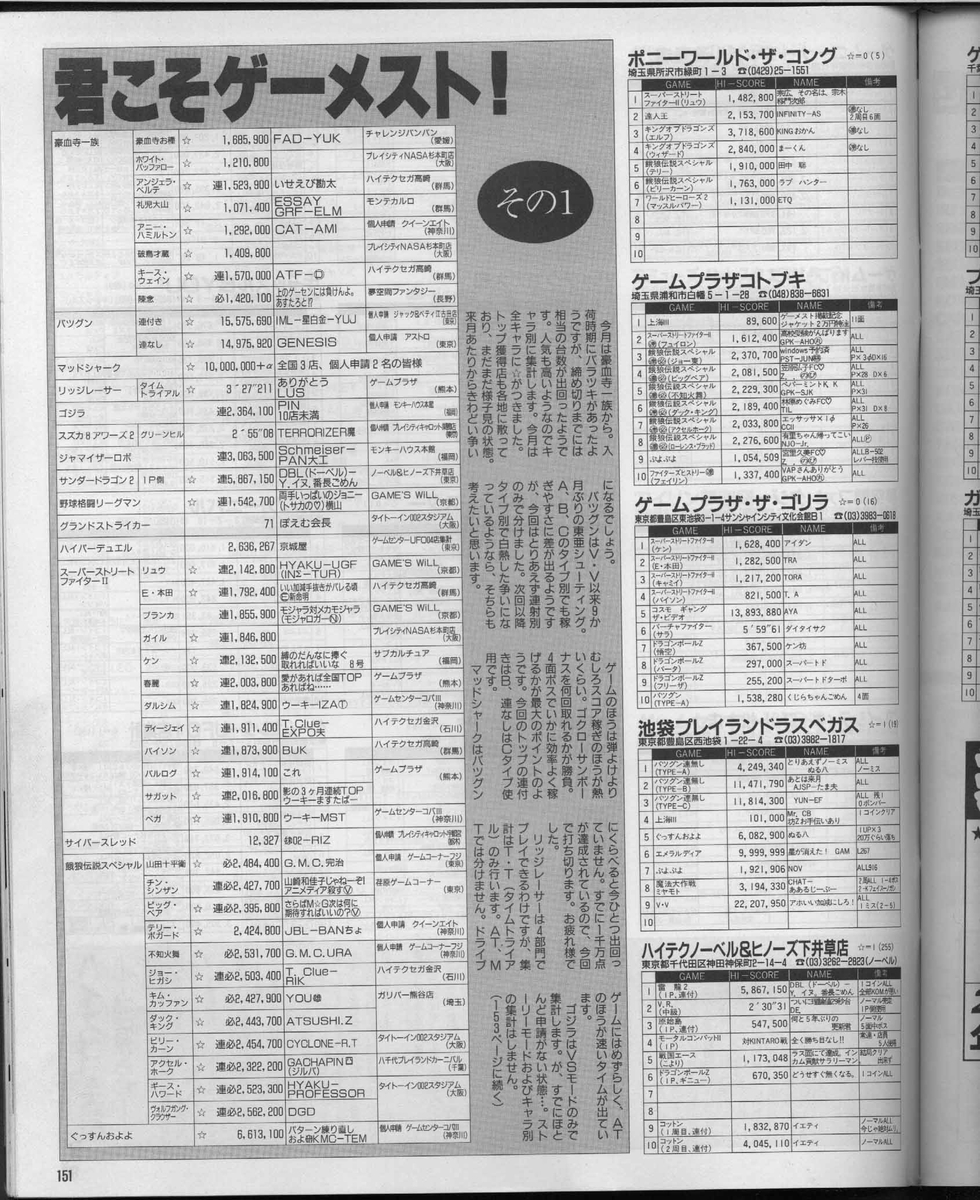 君こそゲーメスト!
その1
豪血寺一族 豪血寺お種 ☆ 1,685,900 FAD-YUK チャレンジバンバン (愛媛)
ホワイト・バッファロー ☆ 1,210,800 プレイシティNASA杉本町店 (大阪)
アンジェラ・ベルテ ☆ 連1,523,900 いせえび勘太 ハイテクセガ高崎 (群馬)
礼児大山 ☆ 1,071,400 ESSAY GRF-ELM モンテカルロ (群馬)
アニー・ハミルトン ☆ 1,292,000 CAT-AMI 個人申請 クイーンエイト (神奈川)
破鳥才蔵 ☆ 1,409,800 プレイシティNASA杉本町店 (大阪)
キース・ウェイン ☆ 連1,570,000 ATF- ハイテクセガ高崎 (群馬)
陳念 ☆ 必1,420,100 上のゲーセンには負けんよ。あすたろと!? 夢空間ファンタジー (長野)
バツグン 連付き ☆ 15,575,690 IML-星白金-YUJ 個人申請 ジャック&ベティ江古田店 (東京)
連なし ☆ 14,975,920 GENESIS 個人申請 アストロ (東京)
マッドシャーク ☆ 10,000,000+α 全国3店、個人申請2名の皆様
リッジレーサー タイムトライアル ☆ 3´27"211 ありがとう LUS ゲームプラザ (熊本)
ゴジラ 連2,364,100 PIN 10店未満 個人申請 モンキーハウス本館 (福岡)
スズカ8アワーズ2 グリーンヒル ☆ 2´55"08 TERRORIZER魔
ジャマイザーロボ 連3,063,500 Schmeiser-PAN大工 モンキーハウス本館 (福岡)
サンダードラゴン2 1P側 ☆ 連5,867,150 DBL(ドーベル)-Y.イヌ、番長ごめん ノーベル&ヒノーズ下井草店 (東京)
野球格闘リーグマン ☆ 連1,542,700 両手いっぱいのジョニー(トサカの♡)横山 GAME'S WiLL (京都)
グランドストライカー 71 ぽえむ会長 タイトーイン002スタジアム (大阪)
ハイパーデュエル ☆ 2,636,267 京城屋 ゲームセンターUFO04店集計 (東京)
スーパーストリートファイターII リュウ ☆ 連2,142,800 HYAKU-UGF (INΣ-TUR) GAME'S WiLL (京都)
E・本田 ☆ 連1,792,400 いい加減手抜きがバレる頃 ハイテクセガ高崎 (群馬)
ブランカ 連1,855,900 モジャラ対メカモジャラ (モジャロガーⓃ) GAME'S WiLL (京都)
ガイル ☆ 連1,846,800 プレイシティNASA杉本町店 (大阪)
ケン ☆ 連2,132,500 縛のだんなに捧ぐ 取れればいいな 8号 サブカルチュア (福岡)
春麗 ☆ 連2,003,800 愛があれば全国TOP あればね…… ゲームプラザ (熊本)
ダルシム ☆ 連1,824,900 ウーキーIZA① ゲームセンターコパⅢ (神奈川)
ディージェイ ☆ 連1,911,400 T.Clue-EXPO夫 ハイテクセガ金沢 (石川)
バイソン ☆ 連1,873,900 BUK ハイテクセガ高崎 (群馬)
バルログ 連1,914,100 これ ゲームプラザ (熊本)
サガット ☆ 連2,016,800 影の3ヶ月連続TOP ウーキーますたばー
ベガ ☆ 連1,910,800 ウーキーMST ゲームセンターコパⅢ (神奈川)
サイバースレッド 12,327 -RIZ
餓狼伝説スペシャル 山田十平衛 ☆ 必2,484,400 G.M.C.完治 個人申請 ゲームコーナーフジ (東京)
チン・シンザン 連必2,427,700 山崎和佳子じゃねーぞ! アニメディア殺すⓋ 荏原ゲームコーナー (東京)
ビッグ・ベア ☆ 連必2,395,800 さらばM☆G次は何に期待すればいいの?Ⓥ
テリー・ボガード ☆ 2,424,800 JBL-BANちょ 個人申請 クイーンエイト (神奈川)
不知火舞 ☆ 必2,531,700 G.M.C.URA 個人申請 ゲームコーナーフジ (神奈川)
ジョー・ヒガシ ☆ 連必2,503,400 T.Clue-RIK ハイテクセガ金沢 (石川)
キム・カッファン ☆ 必2,427,900 YOU雄 ガリバー熊谷店 (埼玉)
ダック・キング ☆ 必2,443,700 ATSUSHI.Z
ビリー・カーン ☆ 連必2,454,700 CYCLONE-R.T タイトーイン002スタジアム (大阪)
アクセル・ホーク ☆ 連必2,322,200 GACHAPIN (ジルバ) 八千代プレイランドカーニバル (千葉)
ギース・ハワード ☆ 連必2,523,300 HYAKU-PROFESSOR タイトーイン002スタジアム (大阪)
ヴォルフガング・クラウザー ☆ 連必2,562,200 DGD
ぐっすんおよよ ☆ 6,613,100 パターン練り直し およ@KMC-TEM 個人申請 ゲームセンターコパⅢ (神奈川)
今月は豪血寺一族から。入
荷時期にバラツキがあったよ
うですが、締め切りまでには
相当の台数が出回ったようで
す。人気も高いようなのでキ
ャラ別に集計します。今月は
全キャラに☆がつきました。
トップ獲得店も各地に散って
おり、まだまだ様子見の状態。
来月あたりからきわどい争い
になるでしょう。
バツグンはV・V以来9か
月ぶりの東亜シューティング。
A、B、Cのタイプ別でも稼
ぎやすさに差が出るようです
が、今回はとりあえず連射別
のみで分けました。次回以降
タイプ別で白熱した争いにな
っているようなら、そちらも
考えたいと思います。
ゲームのほうは弾よけより
むしろスコア稼ぎのほうが熱
いくらい。ゴクローサンボー
ナスを何回取れるかが勝負。
4面ボスでいかに効率よく稼
げるかが最大のポイントのよ
うです。今回のトップの連付
きはB、連なしはCタイプ使
用です。
マッドシャークはバツグン
にくらべると今ひとつ出回っ
ていません。すでに一千万点
が達成されているので、今回
で打ち切ります。お疲れ様で
した。
リッジレーサーは4部門で
プレイできるわけですが、集
計はT・T(タイムトライア
ル)のみ行います。AT、M
Tでは分けません。ドライブ
ゲームにはめずらしく、AT
のほうが速いタイムが出てい
ます。
ゴジラはVSモードのみで
集計しますが、すでにほと
んど申請がない状態…。スト
ーリーモードおよびキャラ別
の集計はしません。
(153ページに続く)
ポニーワールド・ザ・コング ☆=0(5)
埼玉県所沢市緑町1-3 ☎(0429)25-1551
GAME HI-SCORE NAME 備考
1 スーパーストリートファイターII(リュウ) 1,482,800
2 達人王 2,153,700 INFINITY-AS 連なし 2周目6面
3 キングオブドラゴンズ(エルフ) 3,718,600 KINGおかん 連なし
4 キングオブドラゴンズ(ウィザード) 2,840,000 まーくん 連なし
5 餓狼伝説スペシャル(テリー) 1,910,000 田中 聡
6 餓狼伝説スペシャル(ビリーカーン) 1,763,000 ラブ ハンター
7 ワールドヒーローズ2(マッスルパワー) 1,131,000 ETQ
8
9
10
ゲームプラザコトブキ
埼玉県浦和市白幡5-1-28 ☎(048)838-6631
GAME HI-SCORE NAME 備考
1 上海III 89,600 ゲーメスト掲載記念 ジャケット2万円 11面
2 スーパーストリートファイターII (フェイロン) 1,612,400 高校受験がんばります GPK-AHO ALL
3 餓狼伝説スペシャル (ジョー東) 2,370,700 windows予約済 PST-JUN ALL P×3 D×16
4 餓狼伝説スペシャル (ビッグベア) 2,081,500 ALL P×28 D×6
5 餓狼伝説スペシャル (不知火舞) 2,229,300 ペパーミントK.K GPK-SJK ALL P×31
6 餓狼伝説スペシャル (ダック・キング) 2,189,400 林原めぐみFC♡ TIL ALL P×31 D×8
7 餓狼伝説スペシャル (アクセルホーク) 2,033,800 エッサッサ×1 CCII ALL P×26
8 餓狼伝説スペシャル (ローレンス・ブラッド) 2,276,600 有里ちゃん帰ってこい NJO-Jr. ALLⓅ
9 ぷよぷよ 1,054,509 宮里久美FC♡ ALL8-502 レバー技使用
10 ファイターズヒストリー (フェイリン) 1,337,400 VAPさんありがとう GPK-AHO ALL
ゲームプラザ・ザ・ゴリラ ☆=0(16)
東京都豊島区東池袋3-1-4サンシャインシティ文化会館B1 ☎(03)3983-0618
GAME HI-SCORE NAME 備考
1 スーパーストリートファイターII (ケン) 1,628,400 アイダン ALL
2 スーパーストリートファイターII (E・本田) 1,282,500 TRA ALL
3 スーパーストリートファイターII (キャミィ) 1,217,200 TORA ALL
4 スーパーストリートファイターII (バイソン) 821,500 T.A ALL
5 コスモ ギャング ザ・ビデオ 13,893,880 AYA ALL
6 バーチャファイター (サラ) 5´59"61 ダイタイサク ALL
7 ドラゴンボールZ (悟空) 367,500 ケン坊 ALL
8 ドラゴンボールZ (バータ) 297,000 スーパートド ALL
9 ドラゴンボールZ (フリーザ) 255,200 スーパートドターボ ALL
10 バツグン (TYPE-A) 1,538,280 くじらちゃんごめん 4面
池袋プレイランドラスベガス ☆=1(19)
東京都豊島区西池袋1-22-4 ☎(03)3982-1817
GAME HI-SCORE NAME 備考
1 バツグン連無し (TYPE-A) 4,249,340 とりあえずノーミス ぬる八 ALL ノーミス
2 バツグン連無し (TYPE-B) 11,471,790 あとは来月 AJSP-たま夫 ALL
3 バツグン連無し (TYPE-C) 11,814,300 YUN-EF ALL 残1 0ボンバー
4 上海III 101,000 Mr.CB 坊2お手伝いあり 1コインクリア
5 ぐっすんおよよ 6,082,900 ぬる八 1UP×3 20万ぐらい落ち
6 エメラルディア 9,999,999 星が消えた! GAM L267
7 ぷよぷよ 1,921,906 NOV ALL916
8 魔法大作戦 ミヤモト 3,194,330 CHAT-ああるじーぷー
9 V・V 22,207,950 アホいい加減にしろ! ALL 1ミス(2-5)
10
ハイテクノーベル&ヒノーズ下井草店 ☆=1(255)
東京都千代田区神田神保町2-14-4 ☎(03)3262-2823(ノーベル)
GAME HI-SCORE NAME 備考
1 雷龍2 (1P、連付) 5,867,150 DBL(ドーベル)-Y.イヌ、番長ごめん 1コインALL
2 V.R. (中級) 2´30"31
3 原始島 (1P、連付) 547,500 何と5年ぶりの更新君 ノーマル 5面中ボス
4 モータルコンバットII (1P) 対KINTARO戦 全く勝ち目なし!!
5 戦国エース (こより) 1,173,048 ラス面にて達成。インカム貢献サラリーマン
6 ドラゴンボールZ (1P、ギニュー) 670,350 どうせすぐ無くなる。 1コインALL
7
8
9 コットン (1周目、連付) 1,832,870 イエティ ノーマルALL
10 コットン (2周目、連付) 4,045,110 イエティ ノーマルALL
151